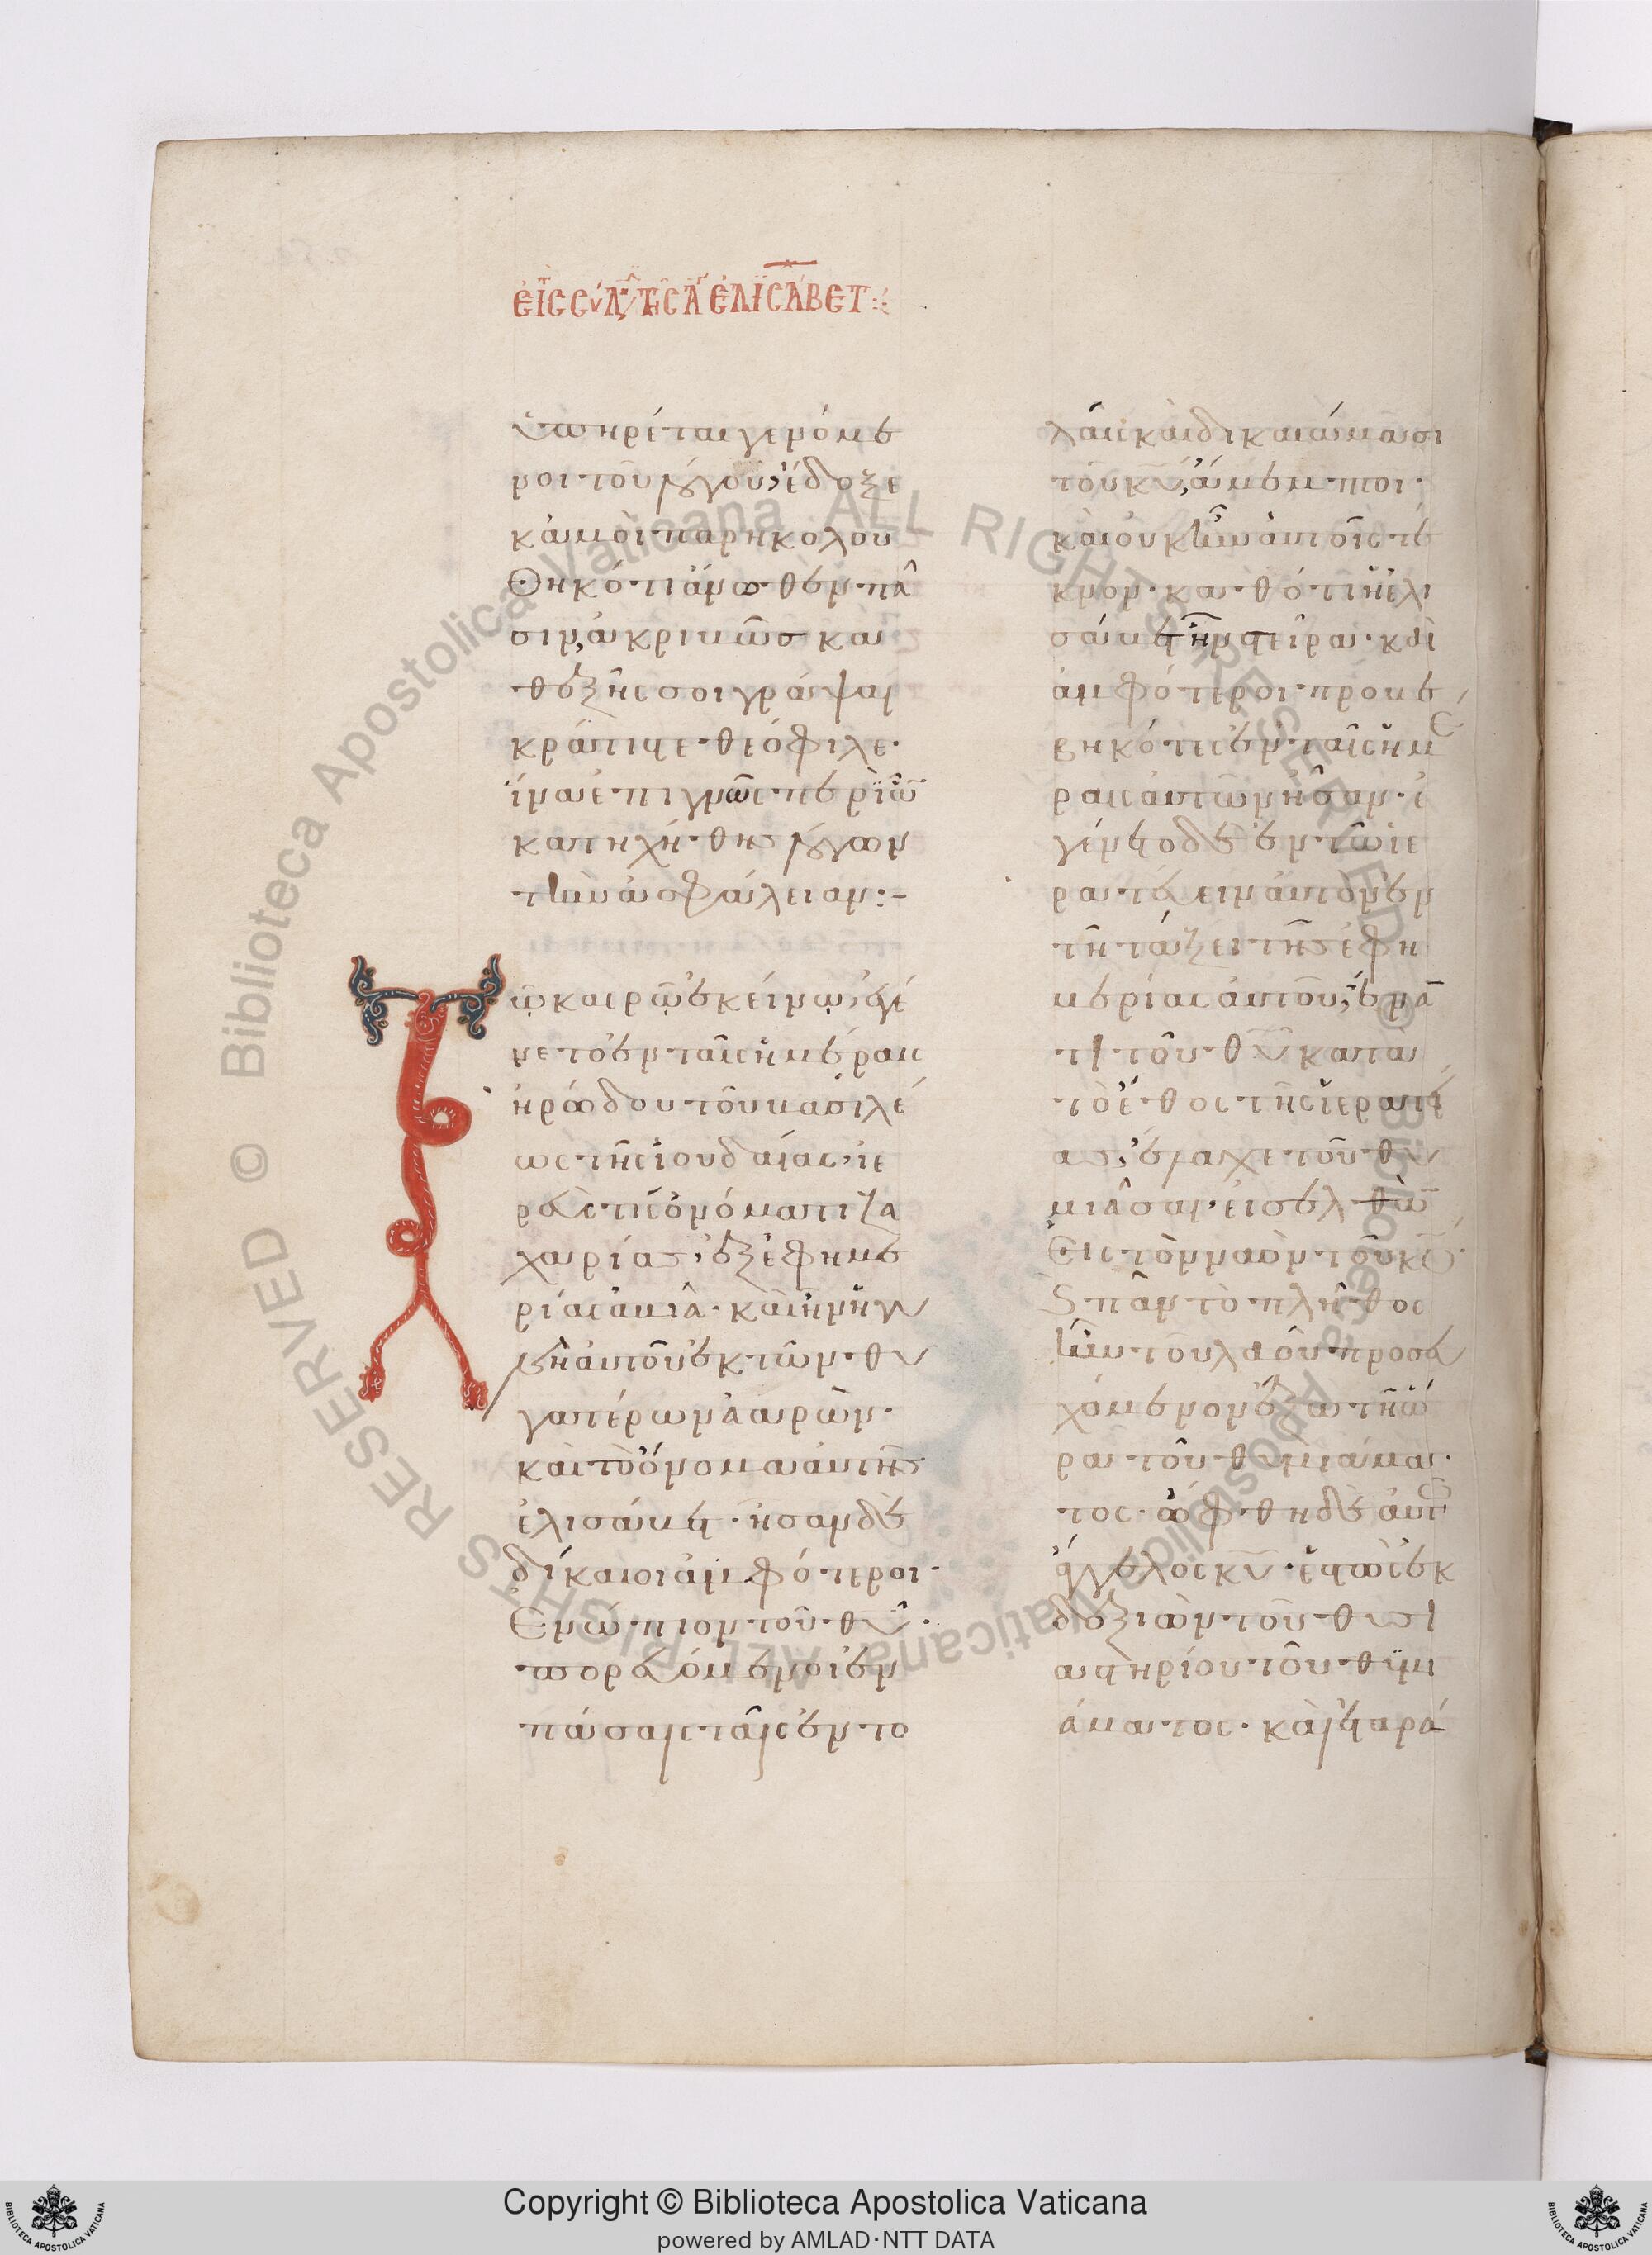 εἰς σύλ τῆς ἁγ ἐλισάβετ
ὑπηρέται γενόμε
νοι τοῦ λόγου, ἔδοξε
κἀμοὶ παρηκολου
θηκότι ἄνωθεν πᾶ
σιν, ἀκριβῶς κα
θεξῆς σοι γράψαι
κράτιστε θεόφιλε·
ἵνα ἐπιγνῶς περὶ ὧ
κατηχήθης λόγων
τὴν ἀσφάλειαν:-
Τῶ καιρῶ ἐκείνω, ἐγέ
νετο ἐν ταῖς ἡμέραις
ἡρώδου τοῦ βασιλέ
ως τῆς ἰουδαίας, ἱε
ρεύς τις ὀνόματι ζα
χαρίας, ἐξ ἐφημε
ρίας ἀβιά· καὶ ἡ γυ
νὴ αὐτοῦ ἐκ τῶν θυ
γατέρων ἀαρών·
καὶ τὸ ὄνομα αὐτῆς
ἐλισάβετ· ἦσαν δὲ
δίκαιοι ἀμφότεροι·
Ἐνώπιον τοῦ θυ·
πορευόμενοι ἐν
πάσαις ταῖς ἐντο
λαῖς καὶ δικαιώμασι
τοῦ κυ, ἄμεμπτοι·
καὶ οὐκ ἦν αὐτοῖς τέ
κνον· καθότι ἡ ἐλι
σάβετ ἦν στεῖρα· καὶ
ἀμφότεροι προβε
βηκότες ἐν ταῖς ἡμέ
ραις αὐτῶν ἦσαν· ἐ
γένετο δὲ ἐν τῶ ἱε
ρατεύειν αὐτὸν ἐν
τῆ τάξει τῆς ἐφη
μερίας αὐτοῦ, ἐναν
τι τοῦ θυ κατὰ
τὸ ἔθος τῆς ἱερατεί
ας, ἔλαχε τοῦ θυ
μιᾶσαι, εἰσελθὼ
Εἰς τὸν ναὸν τοῦ κυ·
κ πᾶν τὸ πλῆθος
ἦν τοῦ λαοῦ προσευ
χόμενον ἔξω τῆ ὥ
ρα τοῦ θυμιάμα
τος· ὤφθη δὲ αὐτῶ
ἄγγελος κυ· ἑστὼς ἐκ
δεξιῶν τοῦ θυσι
αστηρίου τοῦ θυμι
άματος· καὶ ἐταρά
Copyright © Biblioteca Apostolica Vaticana
powered by AMLAD·NTT DATA